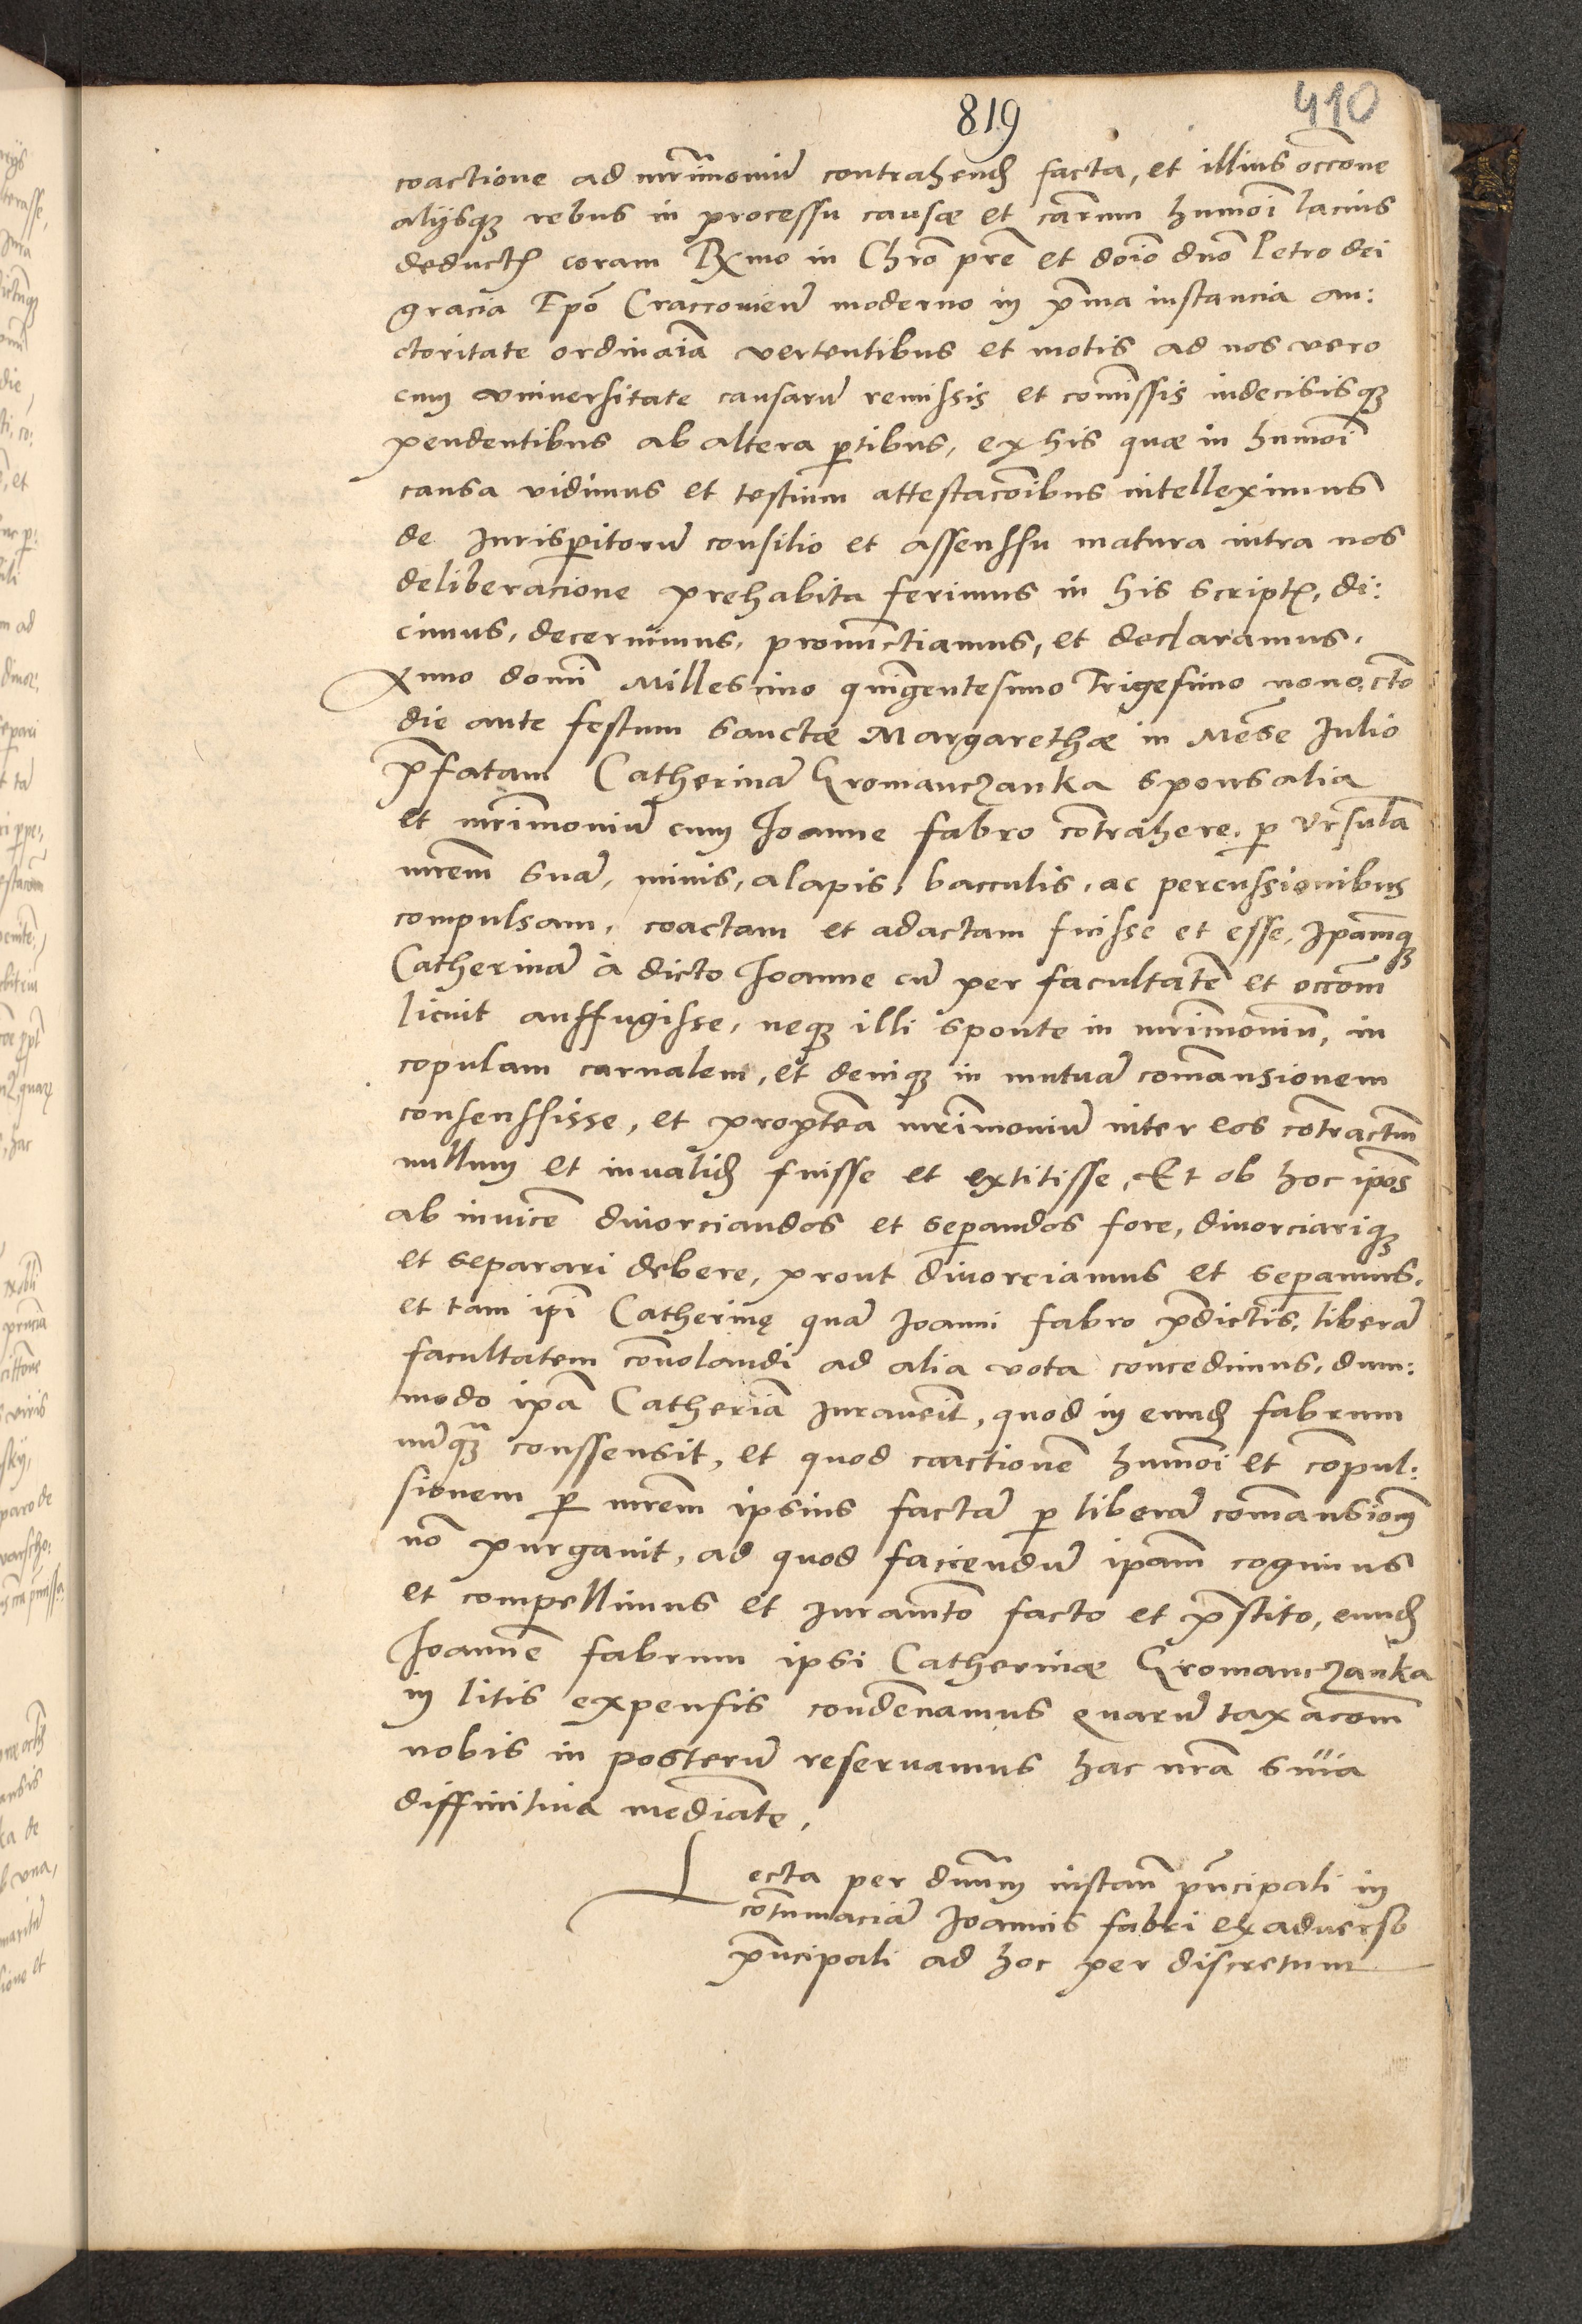 819
410
coactione ad mr̃imoniũ contrahend̃ facta, et illius occõne
alijsq̃ rebus in processu causæ et cãrum hmõi lacius
deduct̃ coram Rx̃mo in Chr̃o prẽ et dñio dñno Petro dei
gracia Epõ Craccovieñ moderno in p̃ma instancia au:
ctoritate ordinaĩa vertentibus et motis ad nos vero
cum vniversitate causarũ remissis et com̃issis indecisisq̃
pendentibus ab altera p̃tibus, ex his quæ in hmõi
causa vidimus et testium attestacõibus intelleximus
de Jurisp̃itorũ consilio et assenssu matura intra nos
deliberacione prehabita ferimus in his script̃, di:
cimus, decernimus, pronũctiamus, et declaramus.
Anno dom̃i Millesimo quĩgentesimo Trigesimo nono, cto
die ante festum Sanctæ Margarethæ in Mẽse Julio
p̃fatam Catherinã Gromanczanka sponsalia
et mr̃imoniũ cum Joanne fabro cõtrahere, p̃ Vrsulã
mr̃em suã, minis, alapis, bacculis, ac percussionibus
compulsam, coactam et adactam fuisse et esse, Ip̃amq̃
Catherinã à dicto Joanne cũ per facultatẽ et occõm
licuit auffugisse, neq̃ illi sponte in mr̃imoniũ, in
copulam carnalem, et deniq̃ in mutuã com̃ansionem
consenssisse, et propt̃ea mr̃imoniũ inter eos cõtractũ
nullum et inualid̃ fuisse et extitisse, Et ob hoc ip̃os
ab inuicẽ diuorciandos et sep̃andos fore, diuorciariq̃
et separari debere, prout diuorciamus et sep̃amus,
et tam ip̃i Catherinę quã Joanni fabro p̃dictis, liberã
facultatem cõuolandi ad alia vota concedimus, dum:
modo ip̃a Catheriã Jurauerit, quod in eund̃ fabrum
nũq̃ conssensit, et quod coactionẽ hmõi et cõpul:
sionem p̃ mr̃em ipsius factã p̃ liberã com̃ansioẽm
nõ purgauit, ad quod faciendũ ip̃am cogimus
et compellimus et Juram̃to facto et p̃stito, eund̃
Joannẽ fabrum ipsi Catherinæ Gromanczanka
in litis expensis condẽnamus quarũ taxacõm
nobis in posterũ reseruamus hac nr̃a sñia
diffinitiua mediañte,
Lecta per dñum instañ p̃ncipali in
cõtumaciã Joannis fabri ex aduerso
p̃ncipali ad hoc per discretum